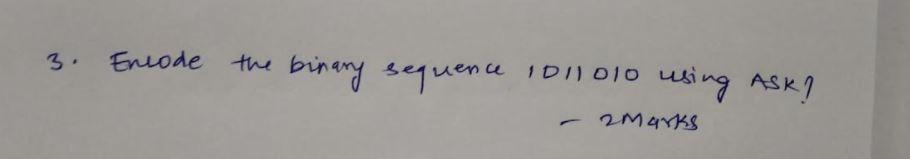 3. Encode the binary sequence 1011010 using ASK?
- 2Marks